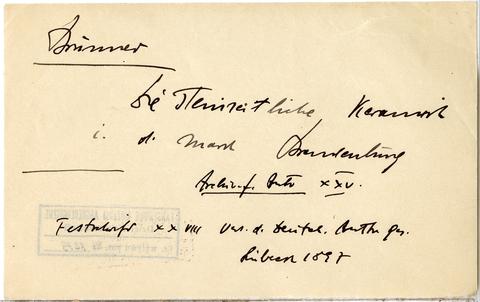 Brunner
Die Steinzeitliche Keramik
i. d. Mark Brandenburg
Archiv f. Anthr XXV.
Festschrift XXVIII Vers. d. Deutsch. Anthr. ges.
Lübeck 1897